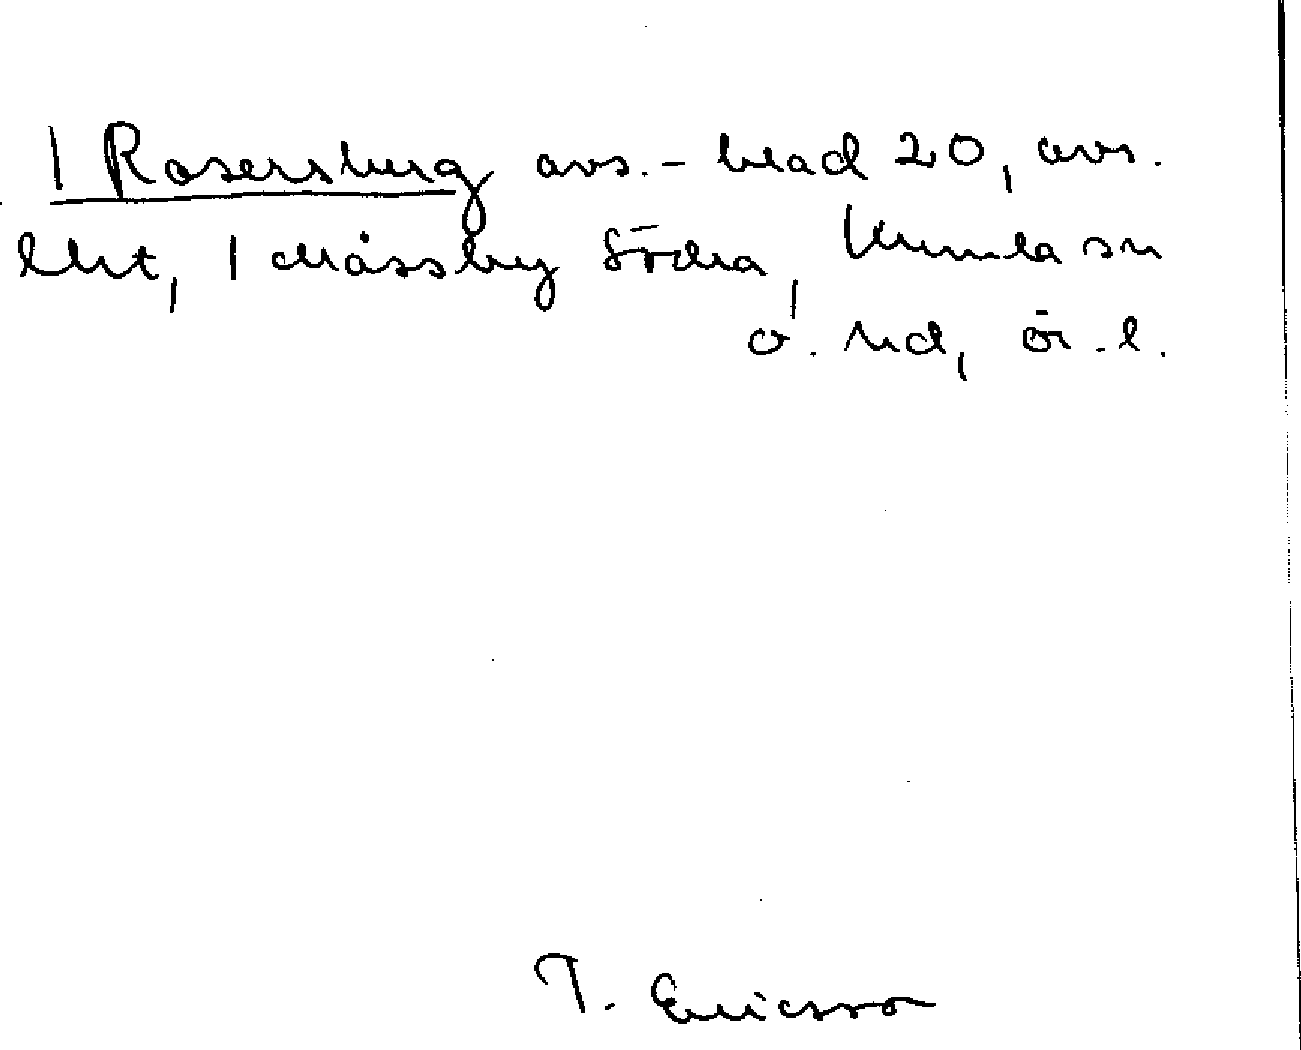 1 Rosersberg avs. - blad 20, avs.
lht, 1 Mossby Södra, Kumla sn
o. hd, ör. l.
T. Ericsson